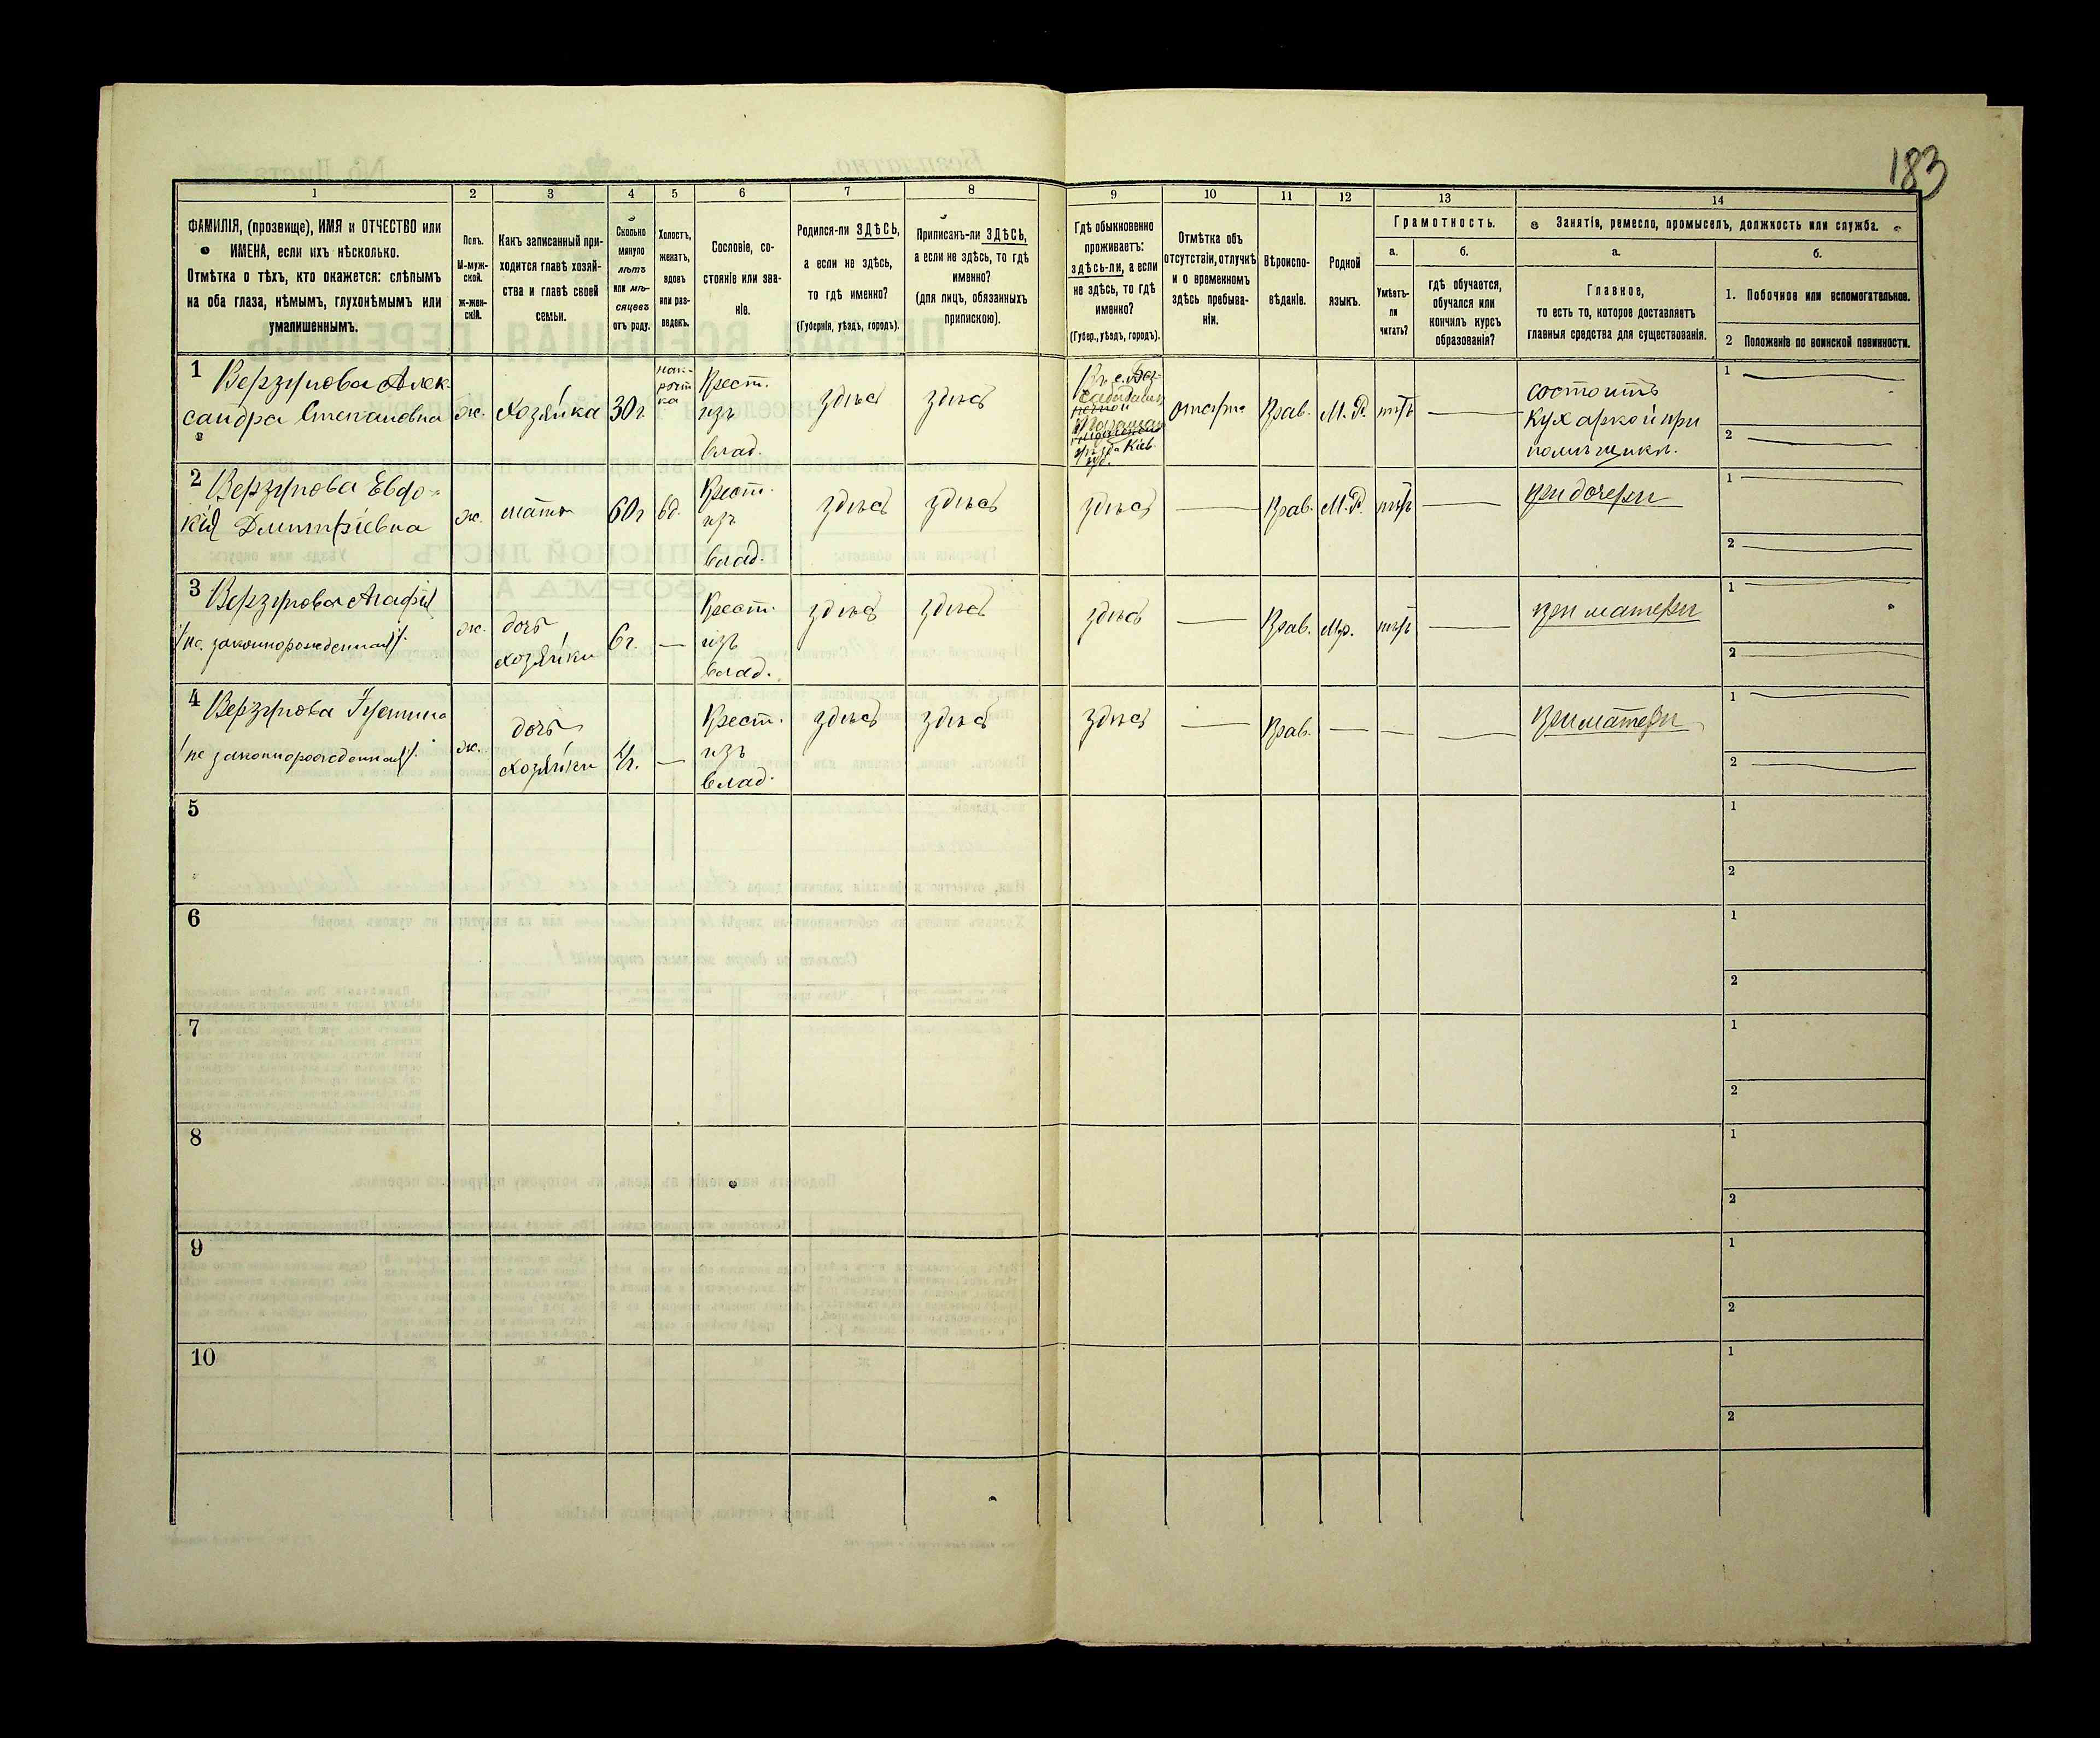 183
1 2 3 4 5 6 7 8 9 10 11 12 13 14
ФАМИЛІЯ, (прозвище), ИМЯ и ОТЧЕСТВО или
ИМЕНА, если ихъ нѣсколько.
Отмѣтка о тѣхъ, кто окажется: слѣпымъ
на оба глаза, нѣмымъ, глухонѣмымъ или
умалишеннымъ.
Полъ.
М-муж-
ской.
Ж-жен-
скій.
Какъ записанный при-
ходится главѣ хозяй-
ства и главѣ своей
семьи.
Сколько
минуло
лѣтъ
или мѣ-
сяцевъ
отъ роду.
Холостъ,
женатъ,
вдовъ
или раз-
веденъ.
Сословіе, со-
стояніе или зва-
ніе.
Родился-ли ЗДѢСЬ,
а если не здѣсь,
то гдѣ именно?
(Губернія, уѣздъ, городъ).
Приписанъ-ли ЗДѢСЬ,
а если не здѣсь, то гдѣ
именно?
(для лицъ, обязанныхъ
припискою).
Гдѣ обыкновенно
проживаетъ:
здѣсь-ли, а если
не здѣсь, то гдѣ
именно?
(Губер., уѣздъ, городъ).
Отмѣтка объ
отсутствіи, отлучкѣ
и о временномъ
здѣсь пребыва-
ніи.
Вѣроиспо-
вѣданіе.
Родной
языкъ.
Грамотность.
а.
Умѣетъ-
ли
читать?
б.
гдѣ обучается,
обучался или
кончилъ курсъ
образованія?
Занятія, ремесло, промыселъ, должность или служба.
а.
Главное,
то есть то, которое доставляетъ
главныя средства для существованія.
б.
1. Побочное или вспомогательное.
2 Положеніе по воинской повинности.
1 Верзунова Алек
сандра Степановна
ж.
Хозяйка
30 г
Крест.
изъ
влад.
здѣсь
здѣсь
Кіев.
Прав.
М. Р.
нѣтъ
состоитъ
Кухаркой при
помѣщикѣ.
1
2
2 Верзунова Евдо-
кія Дмитріевна
ж.
мать
60 г
вд.
Крест.
изъ
влад.
здѣсь
здѣсь
здѣсь
Прав.
М. Р.
нѣтъ
при дочери
1
2
3 Верзунова Агафія
/не законнорожденная/.
ж.
дочь
хозяйки
6 г.
Крест.
изъ
влад.
здѣсь
здѣсь
здѣсь
Прав.
М.р.
нѣтъ
при матери
1
2
4 Верзунова
/не законнорожденная/.
ж.
дочь
хозяйки
Крест.
изъ
влад.
здѣсь
здѣсь
здѣсь
Прав.
при матери
1
2
5
1
2
6
1
2
7
1
2
8
1
2
9
1
2
10
1
2